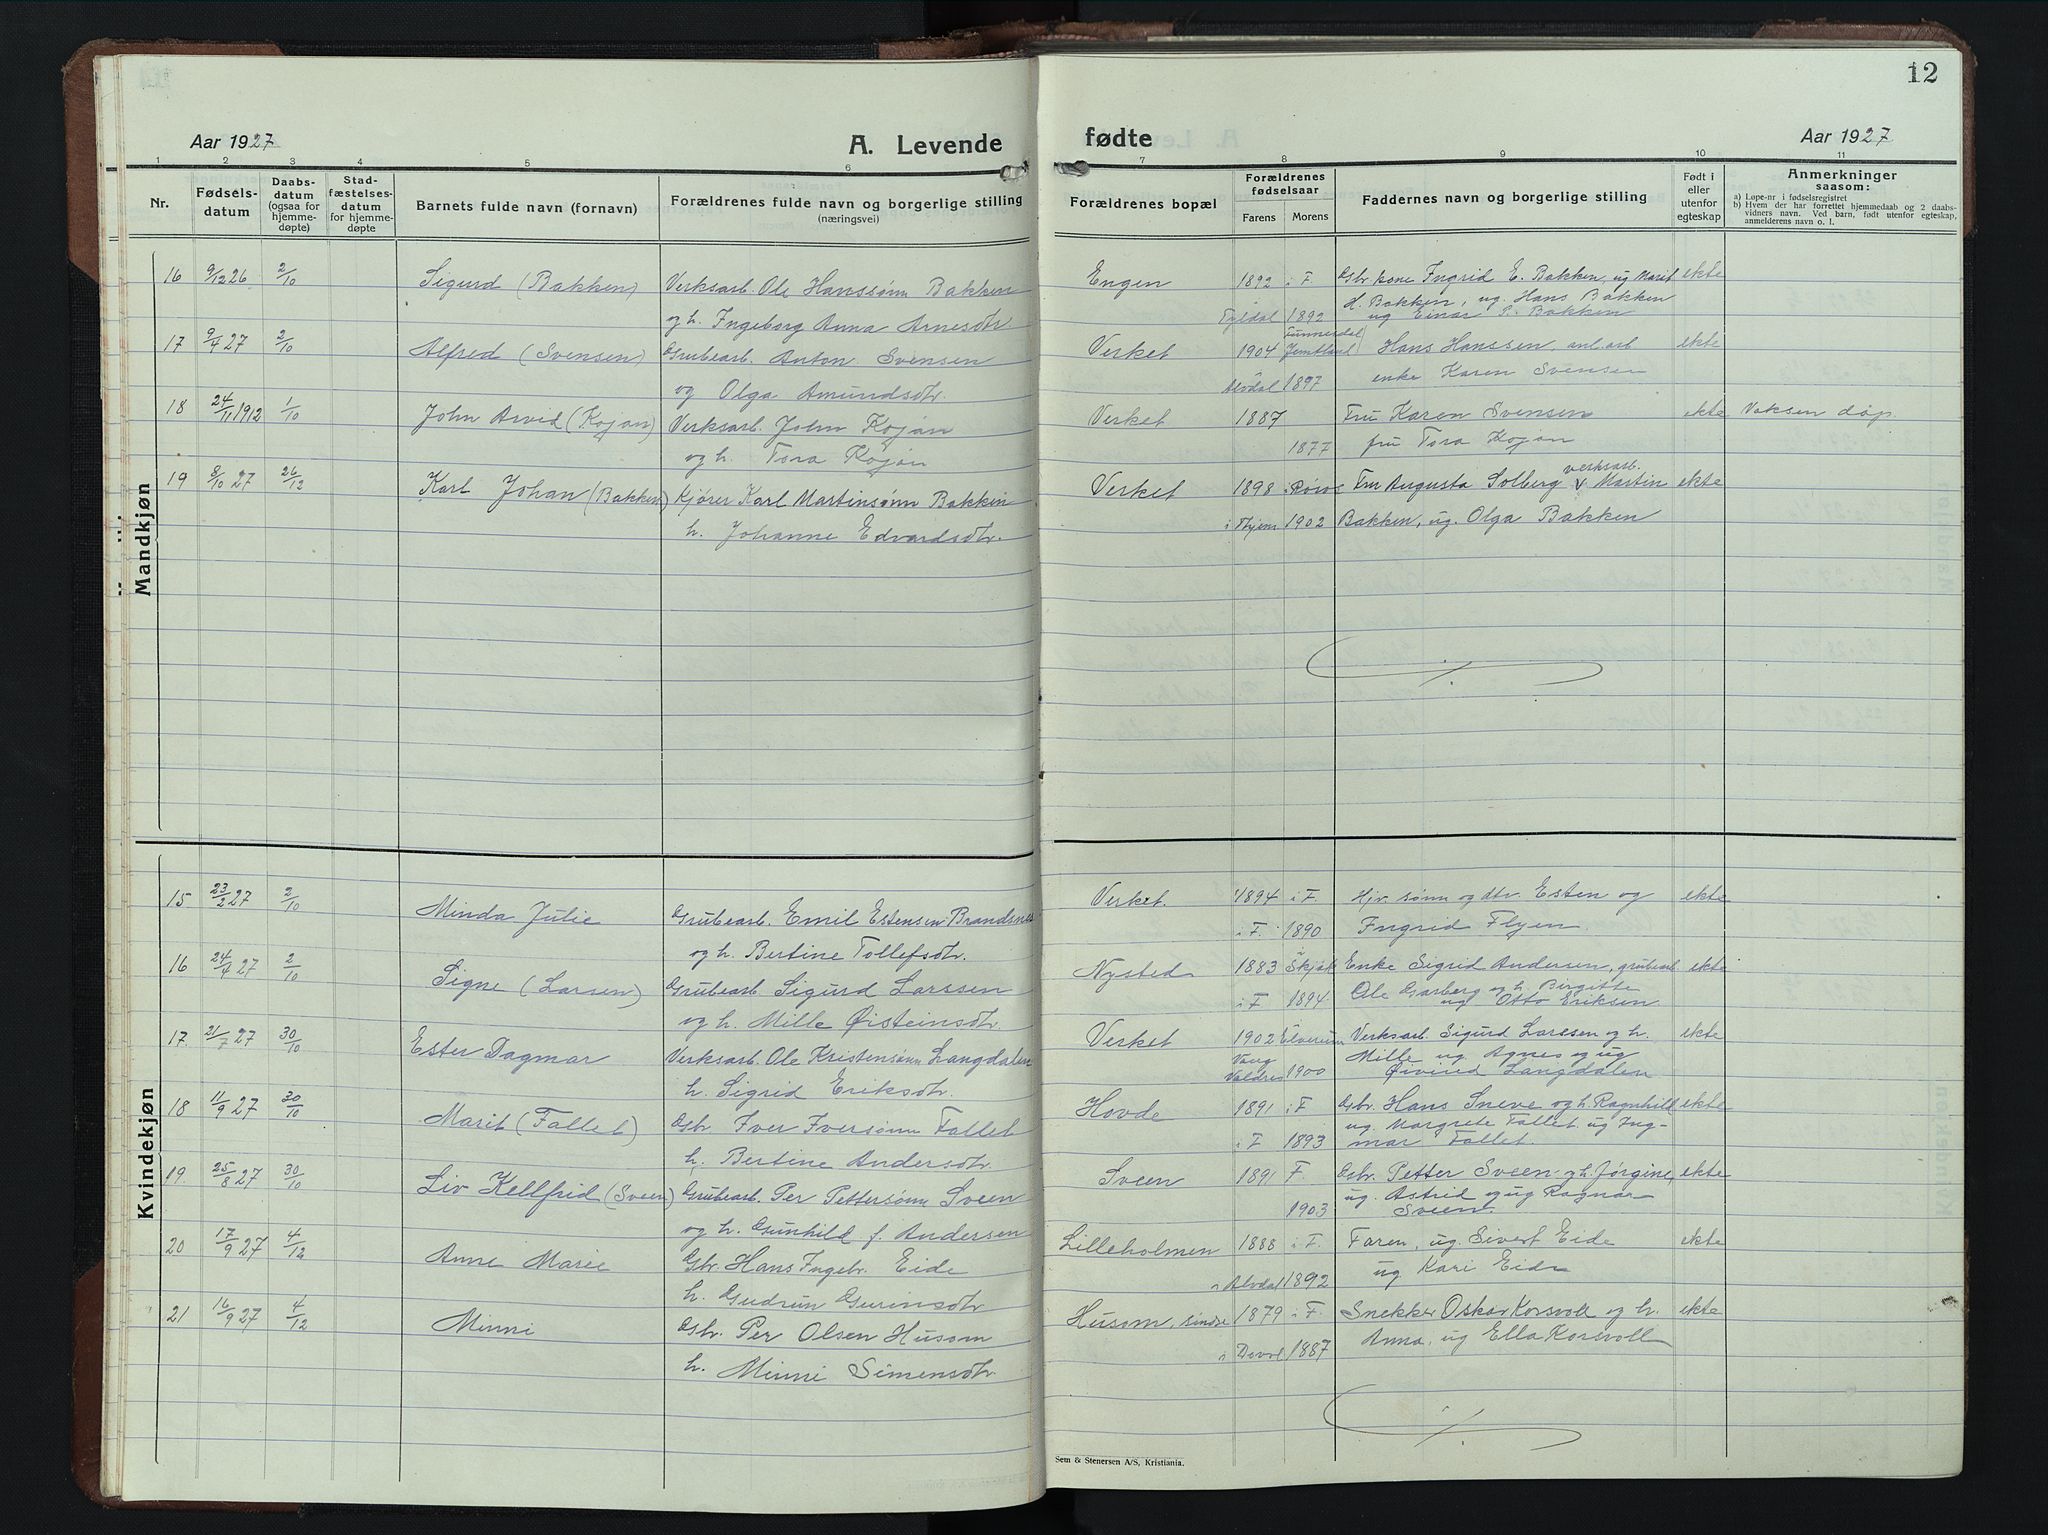 12
Aar 1927
A. Levende
fødte
Aar 1927
1 2 3 4 5 6 7 8 9 10 11
Nr.
Fødsels-
datum
Daabs-
datum
(ogsaa for
hjemme-
døpte)
Stad-
fæstelses-
datum
for hjemme-
døpte
Barnets fulde navn (fornavn)
Forældrenes fulde navn og borgerlige stilling
(næringsvei)
Forældrenes bopæl
Forældrenes
fødselsaar
Farens
Morens
Faddernes navn og borgerlige stilling
Født i
eller
utenfor
egteskap
Anmerkninger
saasom:
a) Løpe-nr i fødselsregistret
b) Hvem der har forrettet hjemmedaab og 2 daabs-
vidners navn. Ved barn, født utenfor egteskap,
anmelderens navn o. l.
Mandkjøn
16 9/12 26 2/10 Sigurd (Bakken) Verksarb. Ole Hanssønn Bakken Engen 1892 i F. Gbr. kone Ingrid E. Bakken, ug Marit ekte
og h. Ingeborg Anna Arnesdtr. Tyldal 1892 H. Bakken, ug. Hans Bakken
ug Einar P. Bakken
17 9/4 27 2/10 Alfred (Svensen) Grubearb. Anton Svensen Verket 1904 Jemtland Hans Hanssen, anl.arb ekte
og Olga Amundsdtr. Alvdal 1897 enke Karen Svensen
18 24/11 1912 1/10 John Arvid (Kojan) Verksarb. John Kojan Verket 1887 Fru Karen Svensen ekte Voksen dåp.
og h. Tora Kojan 1877 fru Tora Kojan
19 8/10 27 26/12 Karl Johan (Bakken) Kjører Karl Martinsønn Bakken Verket 1898 i Røros Fru Augusta Solberg verksarb. Martin ekte
h. Johanne Edvardsdtr. 1902 Bakken, ug. Olga Bakken
Kvindekjøn
15 23/2 27 2/10 Minda Julie Grubearb. Emil Estensen Brandsnes Verket 1894 i F. Hjv. sønn og dtr. Esten og ekte
og h. Bertine Tollefsdtr. i F. 1890 Ingrid Flyen.
16 24/4 27 2/10 Signe (Larsen) Grubearb. Sigurd Larssen Nysted 1883 Skjåk Enke Sigrid Andersen, grubearb ekte
og h. Mille Øisteinsdtr. i F 1894 Ole Garberg og h. Birgitte
ug Otto Eriksen
17. 21/7 27 30/10 Ester Dagmar Verksarb. Ole Kristensønn Langdalen Verket 1902 Elverum Verksarb. Sigurd Larssen og h. ekte
h. Sigrid Eriksdtr. Vang Valdres 1900 Mille ug. Agnes og ug
Øivind Langdalen
18 11/9 27 30/10 Marit (Fallet) Gbr Iver Iversønn Fallet Hovde 1891 i F Gbr. Hans Sneve og h. Ragnhild ekte
h. Bertine Andersdtr. i F 1893 ug. Margrete Fallet ug Ing-
mar Fallet.
19. 25/8 27 30/10 Liv Kellfrid (Sveen) Grubearb. Per Pettersønn Sveen Sveen 1891 F. Gbr. Petter Sveen og h. Jørgine, ekte
og h. Gunhild f. Andersen 1903 ug. Astrid og ug Ragnar
Sveen.
20 17/9 27 4/12 Anne Marie Gbr. Hans Ingebr. Eide Lilleholmen 1888 i F. Faren, ug. Sivert Eide ekte
h. Gudrun Gurinsdtr i Alvdal 1892 ug Kari Eide
21 16/9 27 4/12 Minni Gbr. Per Olsen Husom Husom, sindre 1879 i F. Snekker Oskar Korsvoll og h. ekte
h. Minni Simensdtr. i Dovre 1887 Anna, ug Ella Korsvoll
Sem & Stenersen A/S, Kristiania.